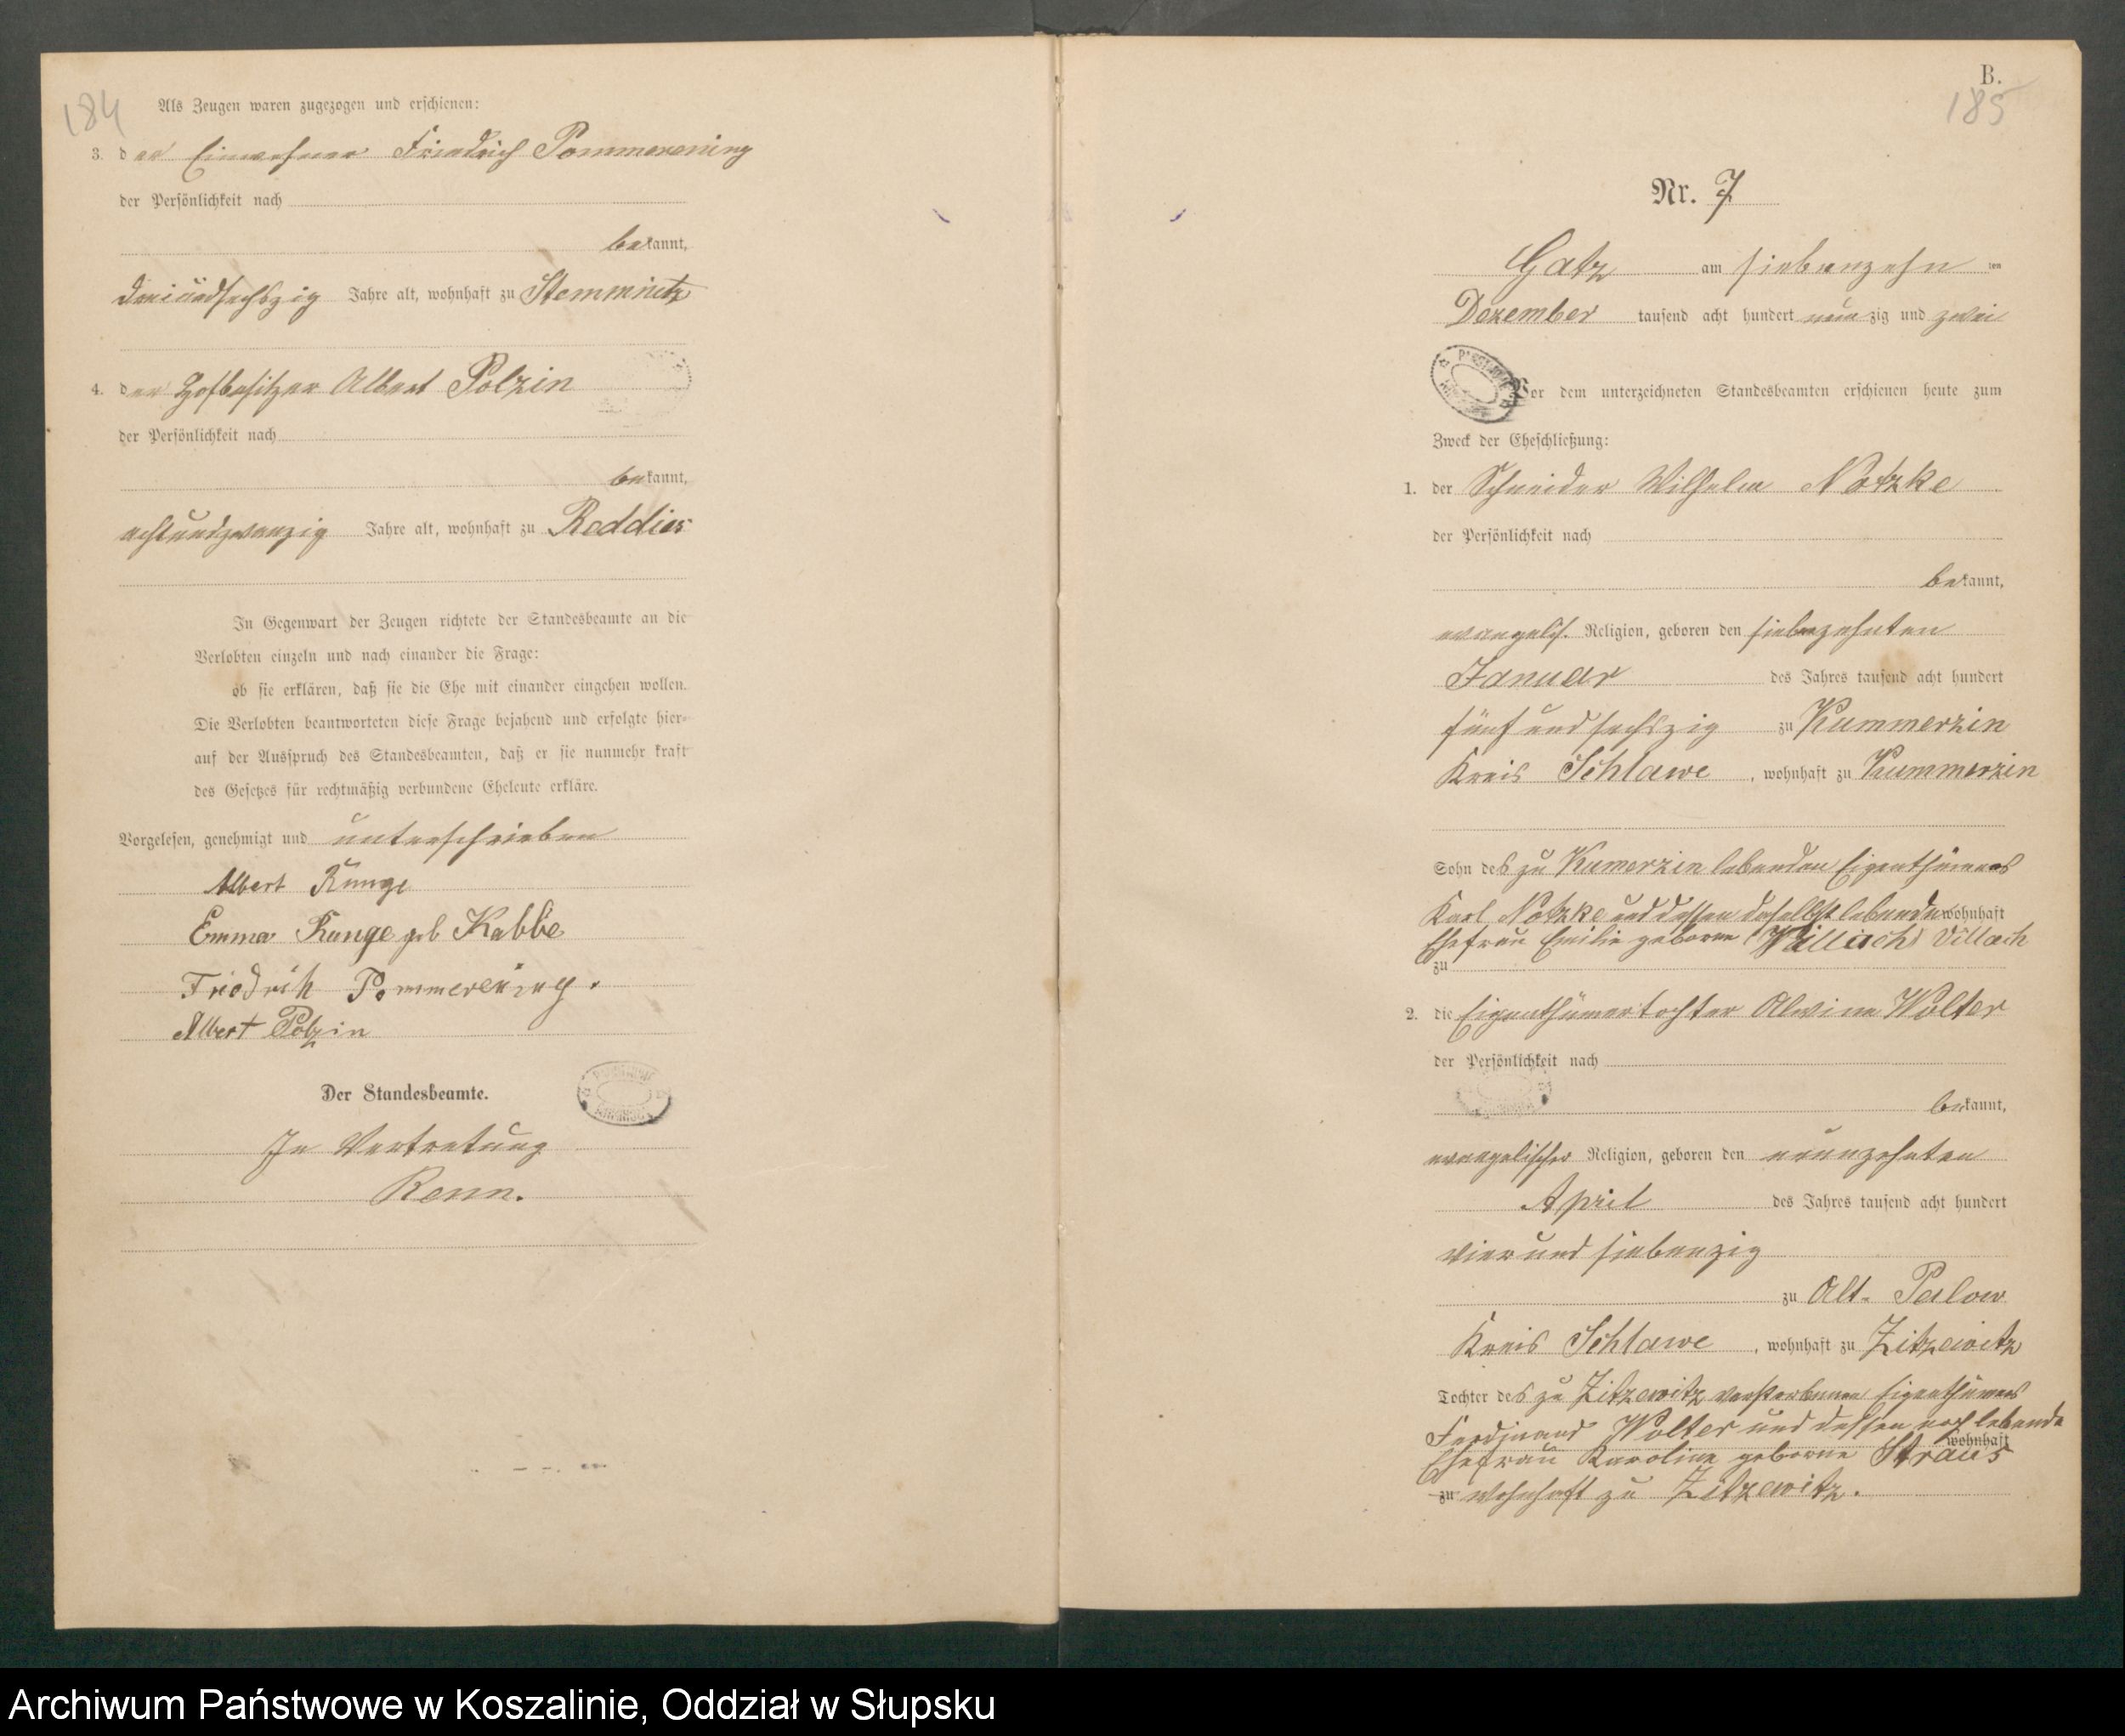 184
Als Zeugen waren zugezogen und erschienen:
3. der Einwohner Friedrich Pommerening
der Persönlichkeit nach
bekannt,
dreiundsechszig Jahre alt, wohnhaft zu Stemmnitz
4. der Hofbesitzer Albert Polzin
der Persönlichkeit nach
bekannt,
achtundzwanzig Jahre alt, wohnhaft zu Reddies
In Gegenwart der Zeugen richtete der Standesbeamte an die
Verlobten einzeln und nach einander die Frage:
ob sie erklären, daß sie die Ehe mit einander eingehen wollen.
Die Verlobten beantworteten diese Frage bejahend und erfolgte hier-
auf der Ausspruch des Standesbeamten, daß er sie nunmehr kraft
des Gesetzes für rechtmäßig verbundene Eheleute erkläre.
Vorgelesen, genehmigt und unterschrieben
Albert Runge
Emma Runge geb Kabbe
Friedrich Pommerening.
Albert Polzin
Der Standesbeamte.
In Vertretung
Renn.
B.
185
Nr. 7
Gatz am siebenzehn ten
Dezember tausend acht hundert neunzig und zwei
Vor dem unterzeichneten Standesbeamten erschienen heute zum
Zweck der Eheschließung:
1. der Schneider Wilhelm Notzke
der Persönlichkeit nach
bekannt,
evangelisch. Religion, geboren den siebenzehnten
Januar des Jahres tausend acht hundert
fünf und sechszig zu Kummerzin
Kreis Schlawe, wohnhaft zu Kummerzin
Sohn des zu Kumerzin lebenden Eigenthümers
Karl Notzke und dessen daselbst lebende wohnhaft
Ehefrau Emilie geborne (Willach) Villach
zu
2. die Eigenthümertochter Alwine Wolter
der Persönlichkeit nach
bekannt,
evangelischer Religion, geboren den neunzehnten
April des Jahres tausend acht hundert
vier und siebenzig
zu Alt-Palow
Kreis Schlawe, wohnhaft zu Zitzewitz
Tochter des zu Zitzewitz verstorbenen Eigenthümers
Ferdinand Wolter und dessen noch lebende
wohnhaft
Ehefrau Karoline geborne Straus
zu wohnhaft zu Zitzewitz.
Archiwum Państwowe w Koszalinie, Oddział w Słupsku